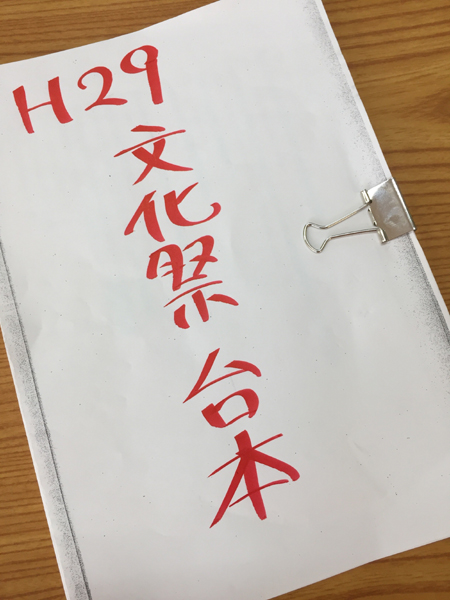 H29
文化祭 台本